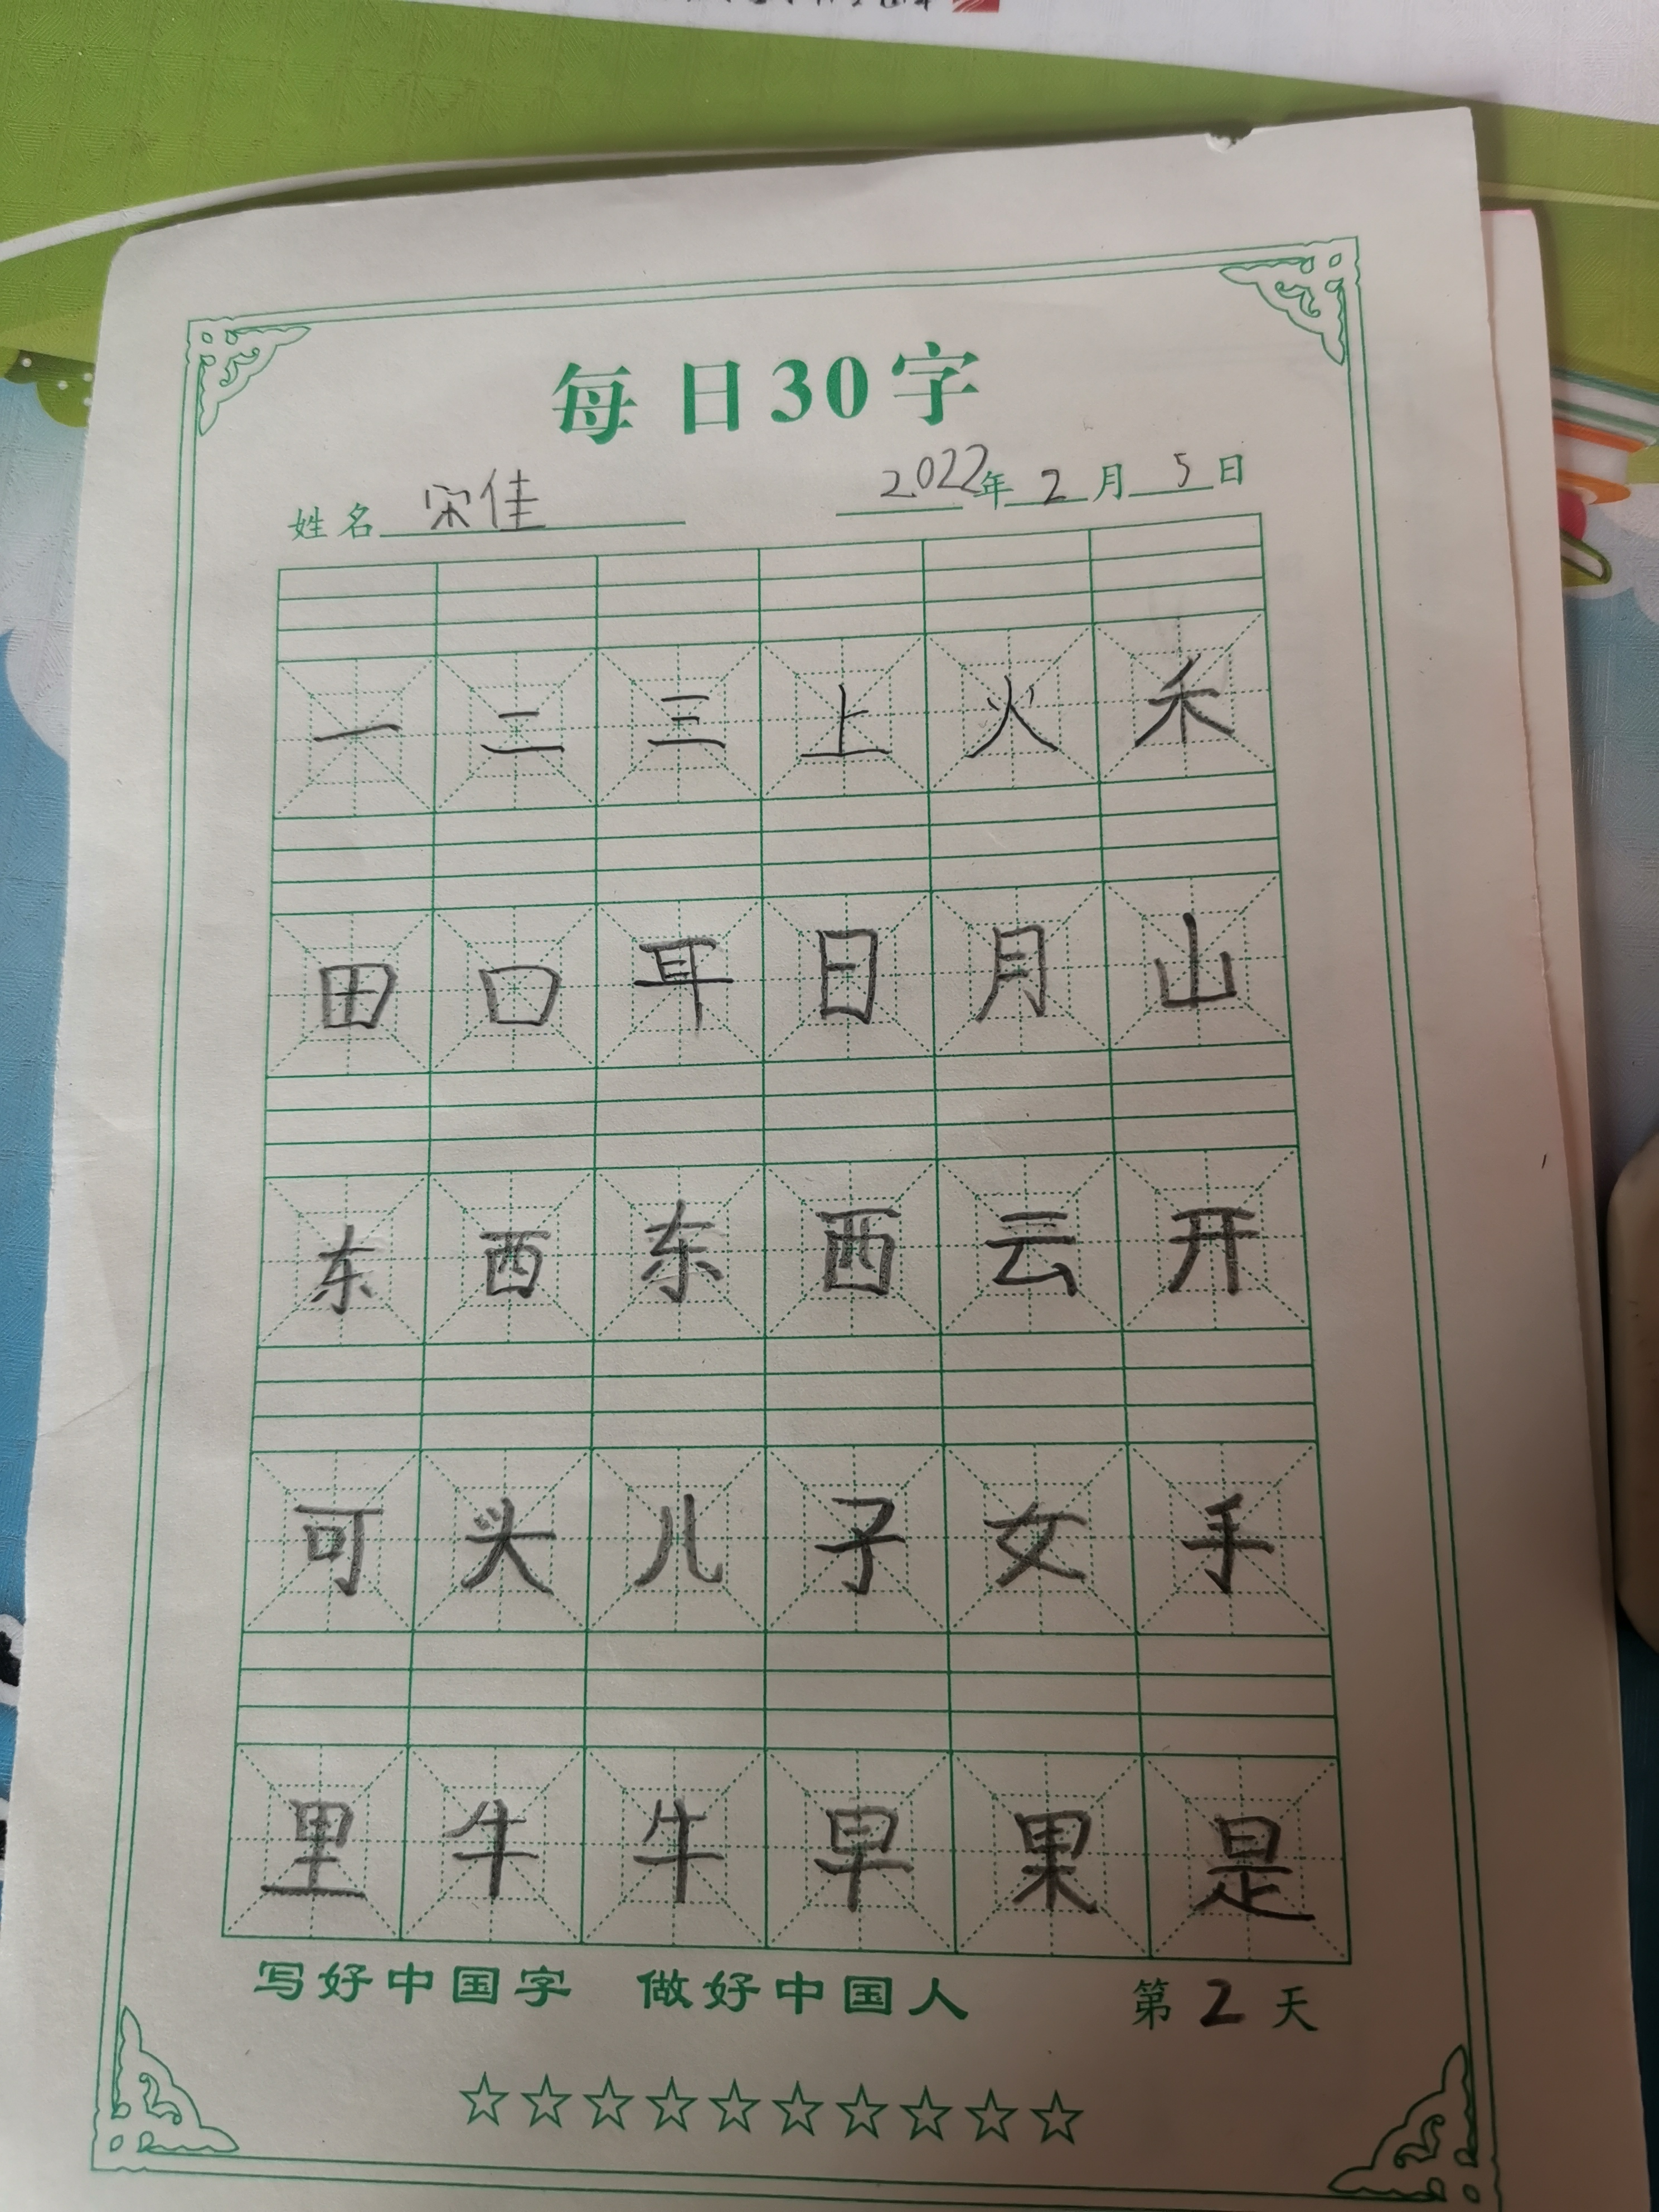 每日30字
姓名 宋佳 2022年2月5日
一二三上火禾
田口耳日月山
东西东西云开
可头儿子女手
里牛牛早果是
写好中国字 做好中国人 第2天